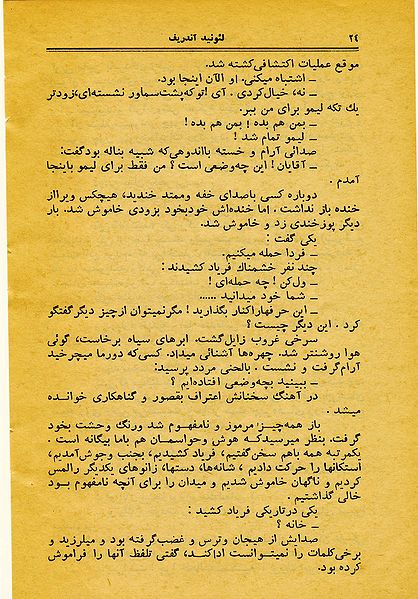 ۲٤ لئونید آندریف
موقع عملیات اکتشافی‌کشته شد.
ــ اشتباه میکنی. او الآن اینجا بود.
ــ نه، خیال‌کردی . آی !توکه‌پشت‌سماور نشسته‌ای،زودتر
یك تکه لیمو برای من ببر.
ــ بمن هم بده ! بمن هم بده !
ــ لیمو تمام شد !
صدائی آرام و خسته بااندوهی‌که شبیه بناله بودگفت:
ــ آقایان! این چه‌وضعی است ؟ من فقط برای لیمو باینجا
آمدم .
دوباره کسی باصدای خفه وممتد خندید، هیچکس ویرااز
خنده باز نداشت . اما خنده‌اش خودبخود بزودی خاموش شد. بار
دیگر پوزخندی زد و خاموش شد.
یکی گفت :
ــ فردا حمله میکنیم.
چند نفر خشمناك فریاد کشیدند :
ــ ول‌کن ! چه حمله‌ای !
ــ شما خود میدانید ......
ــ این حرفهاراکنار بگذارید ! مگرنمیتوان ازچیز دیگرگفتگو
کرد . این دیگر چیست ؟
سرخی غروب زایل‌گشت. ابرهای سیاه برخاست، گوئی
هوا روشنتر شد. چهره‌ها آشنائی میداد. کسی‌که دورما میچرخید
آرام‌گرفت و نشست . بالحنی مردد پرسید:
ــ ببینید بچه‌وضعی افتاده‌ایم ؟
در آهنگ سخنانش اعتراف بقصور و گناهکاری خوانده
میشد .
باز همه‌چیز مرموز و نامفهوم شد ورنگ وحشت بخود
گرفت. بنظر میرسیدکه هوش وحواسمان هم باما بیگانه است .
یکمرتبه همه باهم سخن‌گفتیم، فریاد کشیدیم، بجنب وجوش‌آمدیم،
استکانها را حرکت دادیم ، شانه‌ها، دستها، زانوهای یکدیگر رالمس
کردیم و ناگهان خاموش شدیم و میدان را برای آنچه نامفهوم بود
خالی گذاشتیم .
یکی درتاریکی فریاد کشید :
ــ خانه ؟
صدایش از هیجان وترس و غضب‌گرفته بود و میلرزید و
برخی‌کلمات را نمیتوانست اداکند، گفتی تلفظ آنها را فراموش
کرده بود.